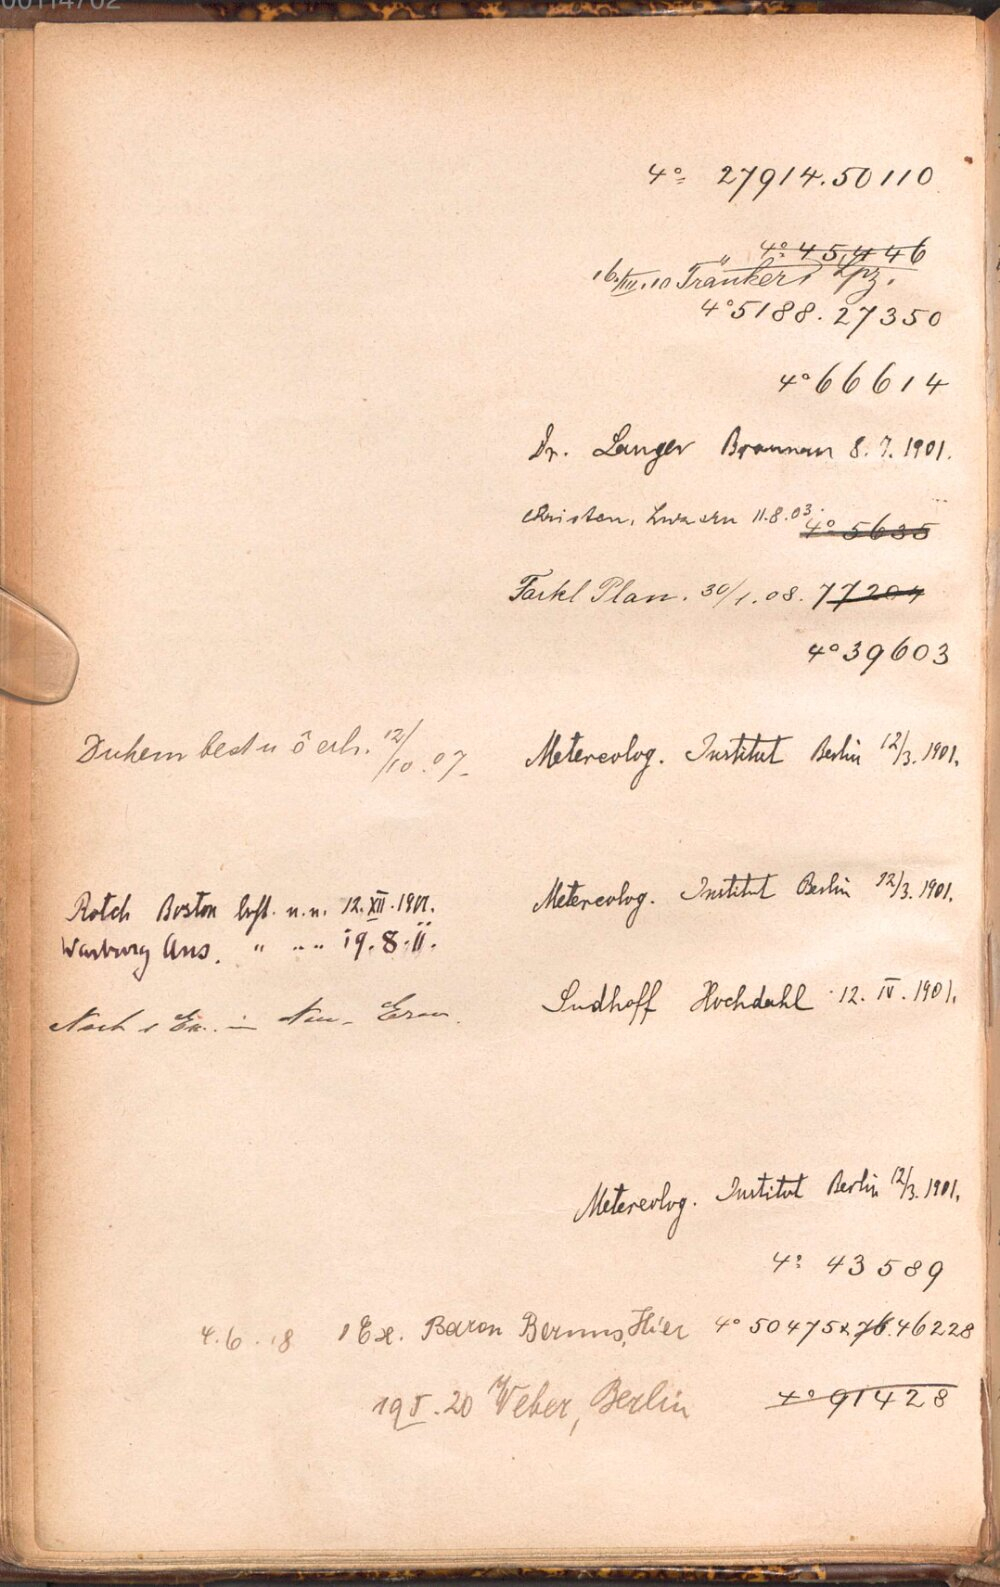 00114702
4° 27914.50110
4° 45,446
16./III.10 Tränkers Lpz.
4° 5188. 27350
4° 66614
Dr. Langer Braunau 8. 7. 1901.
Christen, Luzern 11.8.03. 4° 5635
Farkl Plan. 30/1.08. 77204
4° 39603
Duhem best u ö erh. 12/10.07.
Metereolog. Institut Berlin 12/3. 1901.
Metereolog. Institut Berlin 12/3. 1901.
Rotch Boston best. u. n. 12. XII. 1901.
Warburg Ans. " " " 19. 8. II.
Sudhoff Hochdahl 12. IV. 1901.
Noch 1 Ex. in
Metereolog. Institut Berlin 12/3. 1901.
4° 43589
4.6.18 1 Ex. Baron Bernus, Hier 4° 50475 x 76.46228
19 V. 20 Weber, Berlin 4° 91428